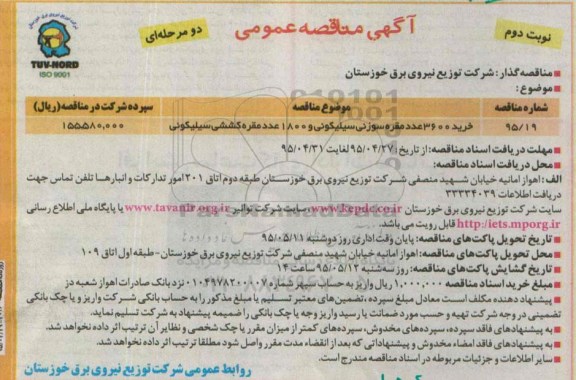 آگهی مناقصه عمومی
دو مرحله‌ای
نوبت دوم
TUV-NORD
ISO 9001
■ مناقصه‌گذار: شرکت توزیع نیروی برق خوزستان
■ موضوع:
شماره مناقصه موضوع مناقصه سپرده شرکت در مناقصه (ریال)
۹۵/۱۹ خرید ۳۶۰۰ عدد مقره سوزنی سیلیکونی و ۱۸۰۰ عدد مقره کششی سیلیکونی ۱۵۵،۵۸۰،۰۰۰
■ مهلت دریافت اسناد مناقصه: از تاریخ: ۹۵/۰۴/۲۷ لغایت ۹۵/۰۴/۳۱
■ محل دریافت اسناد مناقصه:
الف: اهواز امانیه خیابان شهید منصفی شرکت توزیع نیروی برق خوزستان طبقه دوم اتاق ۲۰۱ امور تدارکات و انبارها تلفن تماس جهت
دریافت اطلاعات ۳۳۳۳۴۰۳۹
سایت شرکت توزیع نیروی برق خوزستان www.kepdc.co.ir سایت شرکت توانیر www.tavanir.org.ir یا پایگاه ملی اطلاع رسانی
http:/iets.mporg.ir قابل رویت می باشد.
■ تاریخ تحویل پاکت‌های مناقصه: پایان وقت اداری روز دوشنبه ۹۵/۰۵/۱۱
■ محل تحویل پاکت‌های مناقصه: اهواز امانیه خیابان شهید منصفی شرکت توزیع نیروی برق خوزستان - طبقه اول اتاق ۱۰۹
■ تاریخ گشایش پاکت‌های مناقصه: روز سه شنبه ۹۵/۰۵/۱۲ ساعت ۱۴
■ مبلغ خرید اسناد مناقصه ۱،۰۰۰،۰۰۰ ریال واریز به حساب سپهر شماره ۰۱۰۴۹۷۸۲۰۰۰۰۷ نزد بانک صادرات اهواز شعبه در
پیشنهاد دهنده مکلف است معادل مبلغ سپرده، تضمین‌های معتبر تسلیم یا مبلغ مذکور را به حساب بانکی شرکت واریز و یا چک بانکی
تضمینی در وجه شرکت تهیه و حسب مورد ضمانت یا رسید واریز وجه یا چک بانکی را ضمیمه پیشنهاد به شرکت تسلیم نماید.
■ به پیشنهادهای فاقد سپرده، سپرده‌های مخدوش، سپرده‌های کمتر از میزان مقرر یا چک شخصی و نظایر آن ترتیب اثر داده نخواهد شد.
■ به پیشنهادهای فاقد امضاء مخدوش و پیشنهاداتی که بعد از انقضاء مدت مقرر واصل شود مطلقا ترتیب اثر داده نخواهد شد.
■ سایر اطلاعات و جزئیات مربوطه در اسناد مناقصه مندرج است.
روابط عمومی شرکت توزیع نیروی برق خوزستان